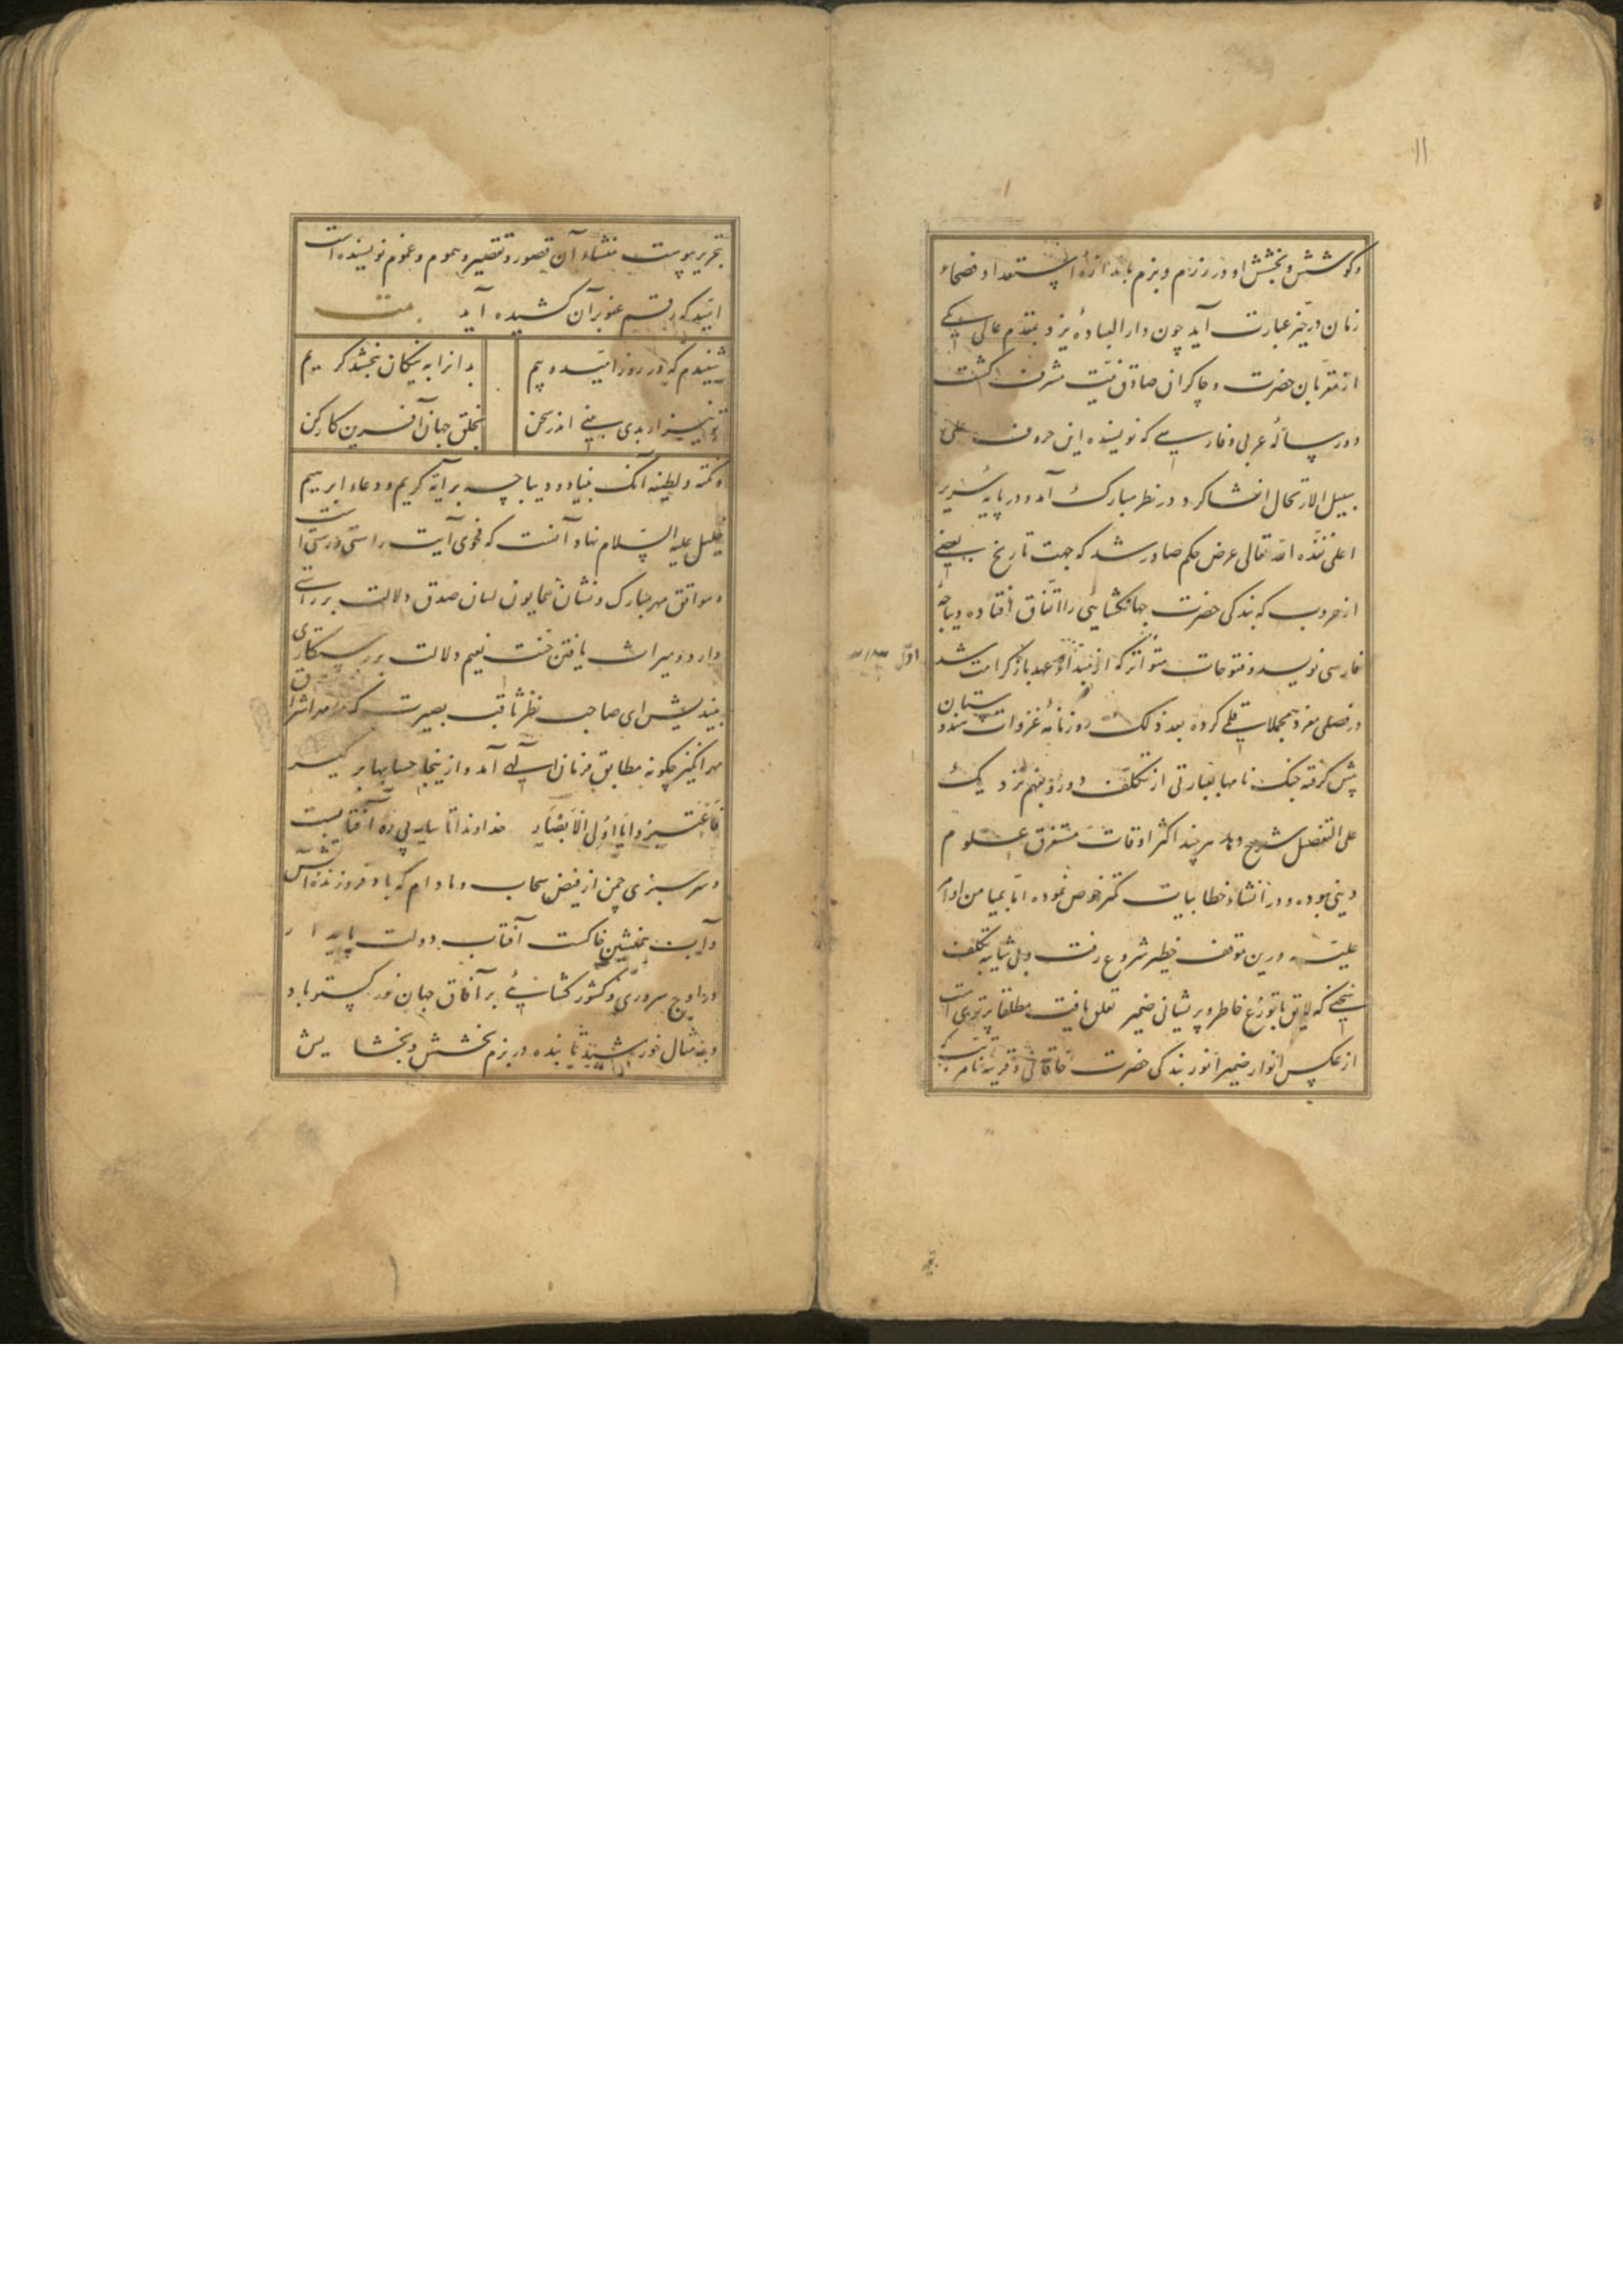 ۱۱
وکوشش و بخشش او در رزم و بزم باندازهٔ استعداد فصحاء
زمان در حیز عبارت آید چون دار العبادهٔ یزد بمقدم عالی یکی
از مقربان حضرت و چاکران صادق نیت مشرف گشت
و دو رسالهٔ عربی و فارسی که نویسنده این حروف علی
سبیل الارتحال انشا کرد در نظر مبارک آمد و در پایهٔ سریر
اعلی نفذه الله تعالی عرض حکم صادر شد که جهت تاریخ بعضی
از حروب که بندکی حضرت جهانکشایی را اتفاق افتاده دیباجهٔ
فارسی نویسد و فتوحات متواتر که از مبداء عهد باز کرامت شد
در فصلی مفرد بمجملات قلمی کرده بعد ذلک روزنامهٔ غزوات هندوستان
پیش کرفته جنک نامها بعبارتی از تکلف دور و بفهم نزدیک
علی التفصیل شرح دهد هر چند اکثر اوقات مستغرق علوم
دینی بوده و در انشاء خطابیات کمتر خوض نموده اما بمیامن اوامر
علیه درین موقف خطیر شروع رفت و بی شایبه تکلف
سخنی که لایق با توزع خاطر و پریشانی ضمیر تعلق یافت مطلقا پرتوی است
از عکس انوار ضمیر انور بندکی حضرت خاقانی و قرینهٔ نامرتب که
اول
تحریر پیوست منشاء آن قصور و تقصیر و هموم و غموم نویسنده است
امید که رقم عفو بر آن کشیده آید بیت
شنیدم که در روز امید و بیم بدانرا به نیکان ببخشد کریم
تو نیز ار بدی بینی اندر سخن بخلق جهان آفرین کار کن
و نکته و لطیفه آنک بنیاد دیباچه بر آیهٔ کریم و دعاء ابرهیم
خلیل علیه السلام نهاد آنست که فحوی آیت راستی درستی است
و موافق مهر مبارک و نشان همایون لسان صدق دلالت بر راستی
دارد و میراث یافتن جنت نعیم دلالت بر رستکاری
بیندیش ای صاحب نظر ثاقب بصیرت که مهر اشراق
مهر انکیز چکونه مطابق فرمان الهی آمد و از ینجا حسابها بر کیر
فاعتبروا یا اولی الابصار خداوندا تا سایه پی رو آفتابست
و سرسبزی چمن از فیض سحاب و مادام که باد فروزنده آتش
و آب همنشین خاکست آفتاب دولت پایدار
در اوج سروری و کشور کشائی بر آفاق جهان نور کستر باد
و بر مثال خورشید تابنده در بزم بخشش و بخشایش